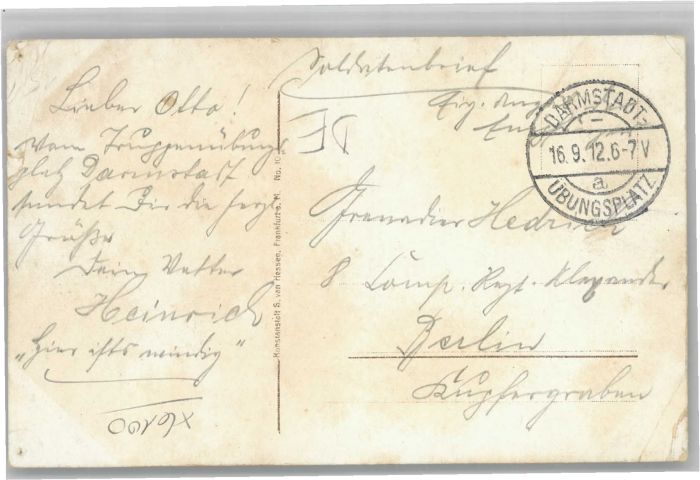 Lieber Otto!
Vom Truppenübungs
platz Darmstadt
sendet Dir die herzl.
Grüße
Dein Vetter
Heinrich
„Hier ists windig“
X6190
Kunstanstalt S. van Hessen, Frankfurt a. M. No.
Soldatenbrief
Eig. Ang.
DE
DARMSTADT-
16.9.12.6-7V
a
ÜBUNGSPLATZ
Grenadier Hedrich
8 Comp. Regt. Alexander
Berlin
Kupfergraben